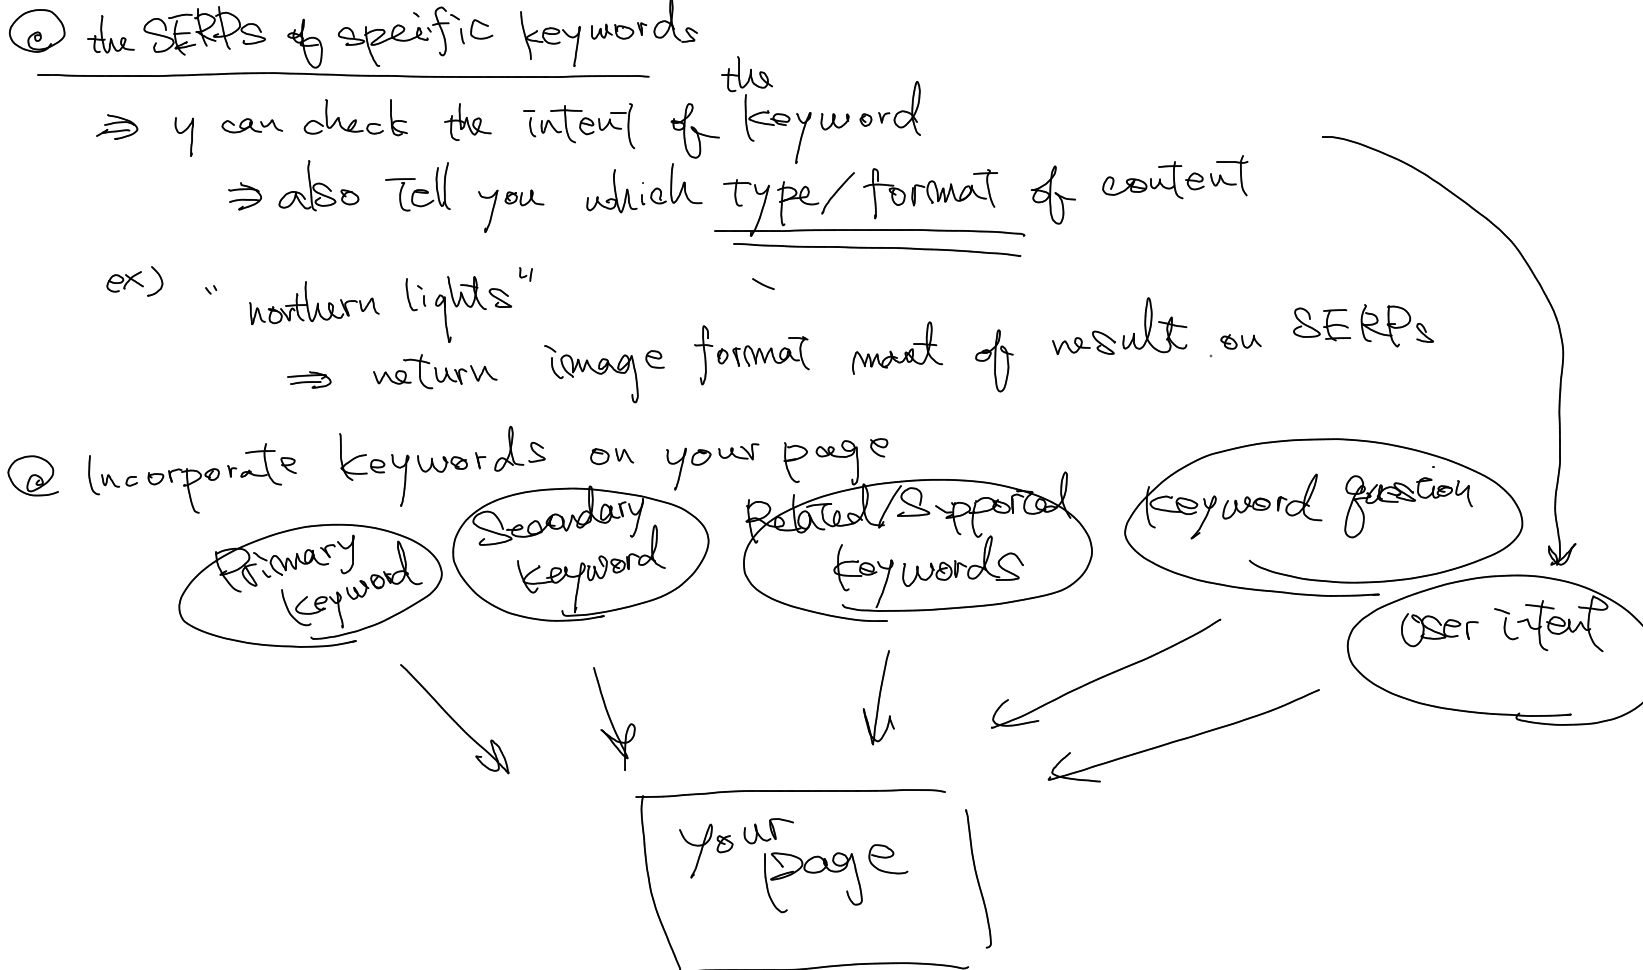 @ the SERPs of specific keywords
⇒ y can check the intent of the keyword
⇒ also tell you which type/format of content
ex) "northern lights"
⇒ return image format most of result on SERPs
@ Incorporate keywords on your page
Primary keyword
Secondary keyword
Related/Supported keywords
keyword question
User intent
your page